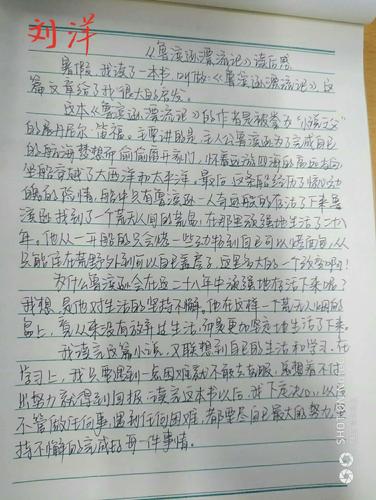 刘洋
《鲁滨逊漂流记》读后感
暑假,我读了一本书,叫做《鲁滨逊漂流记》,这
篇文章给了我很大的启发。
这本《鲁滨逊漂流记》的作者是被誉为“小说之父”
的展丹尼尔·笛福。主要讲的是:主人公鲁滨逊为了完成自己
的航海梦想而偷偷离开家门,怀着远游四海的高远志向,
坐船穿越了大西洋和太平洋。最后,这条船经历了惊心动
魄的险情,船中只有鲁滨逊一人奇迹般的存活了下来,鲁
滨逊找到了一个荒无人间的荒岛,在那里顽强地生活了二十八
年。他从一开始的只会烧一些动物到自己可以烤面包,从
只能住在荒野外到可以自己盖房子,这是多大的一个改变啊!
为什么鲁滨逊会在这二十八年中顽强地存活下来呢?
我想,是他对生活的坚持不懈。他在这样一个荒无人烟的
岛上,看从来没有放弃过生活,而是更加坚定地生活了下来。
我读完这篇小说,又联想到自己的生活和学习。在
学习上,我只要遇到一点困难就不敢去克服,总想着不付
出努力就得到回报。读完这本书以后,我下定决心,以后
不管做任何事,遇到任何困难,都要尽自己最大的努力,坚
持不懈的完成好每一件事情。
SHOT ON